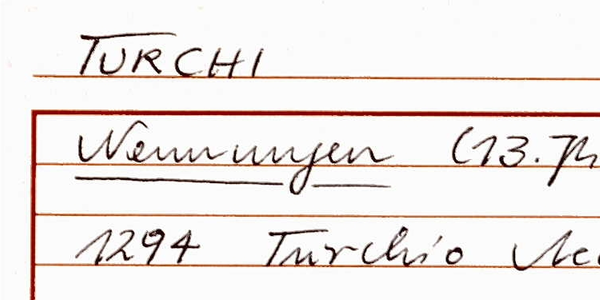 TURCHI
Nennungen (13. Jh
1294 Turchio